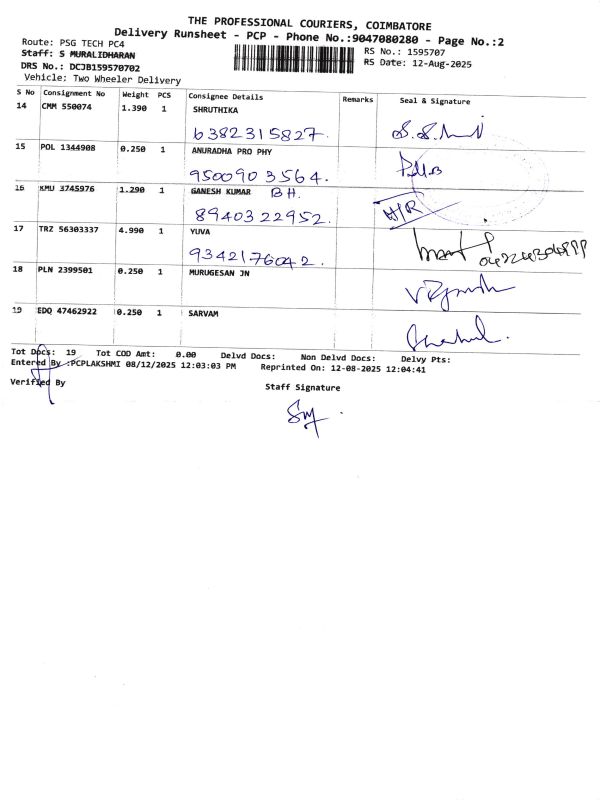 THE PROFESSIONAL COURIERS, COIMBATORE
Delivery Runsheet - PCP - Phone No.:9047080280 - Page No.:2
Route: PSG TECH PC4
RS No.: 1595707
Staff: S MURALIDHARAN
RS Date: 12-Aug-2025
DRS No.: DCJB159570702
Vehicle: Two Wheeler Delivery
S No Consignment No Weight PCS Consignee Details Remarks Seal & Signature
14 CMM 550074 1.390 1 SHRUTHIKA
6382315827.
15 POL 1344908 0.250 1 ANURADHA PRO PHY
9500903564.
16 KMU 3745976 1.290 1 GANESH KUMAR BH.
8940322952. H/R
17 TRZ 56303337 4.990 1 YUVA
9342176042.
18 PLN 2399501 0.250 1 MURUGESAN JN
19 EDQ 47462922 0.250 1 SARVAM
Tot Docs: 19 Tot COD Amt: 0.00 Delvd Docs: Non Delvd Docs: Delvy Pts:
Entered By :PCPLAKSHMI 08/12/2025 12:03:03 PM Reprinted On: 12-08-2025 12:04:41
Verified By
Staff Signature